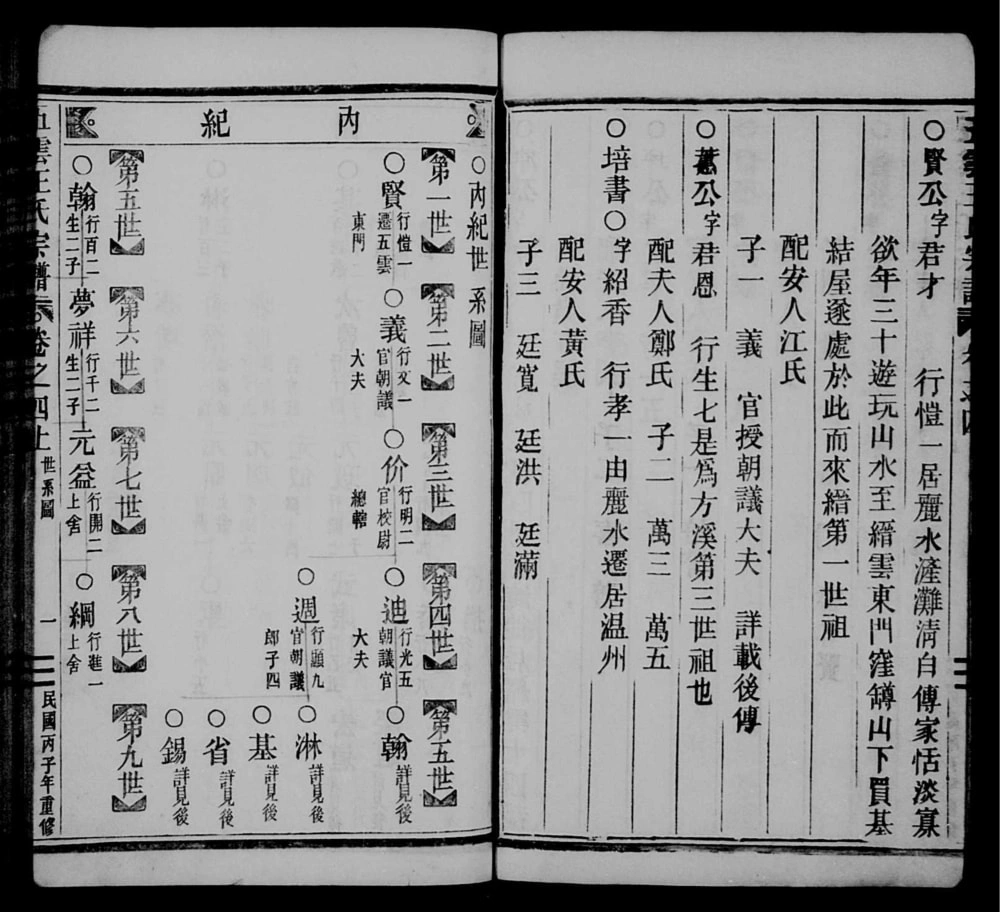 ○賢公字君才　行愷一居麗水滻灘淸白傳家恬淡寡
欲年三十遊玩山水至縉雲東門窪罇山下買基
結屋遂處於此而來縉第一世祖
配安人江氏
子一　義　官授朝議大夫　詳載後傳
公字君恩　行生七是爲方溪第三世祖也
配夫人鄭氏　子二　萬三　萬五
○培書○字紹香　行孝一由麗水遷居温州
配安人黃氏
子三　廷寬　廷洪　廷滿
內紀
○內紀世系圖
第一世
第二世
第三世
第四世
第五世
○賢 行愷一遷五雲東門
○義 行文一官朝議大夫
○价 行明二官校尉總轄
○迪 行光五朝議官大夫
○翰 詳見後
○週 行願九官朝議郎子四
○淋 詳見後
○基 詳見後
○省 詳見後
○錫 詳見後
第五世
第六世
第七世
第八世
第九世
○翰 行百二生二子
夢祥 行千二生二子
元益 行開二上舍
○綱 行進一上舍
五雲王氏宗譜 卷之四上 世系圖 一 民國丙子年重修